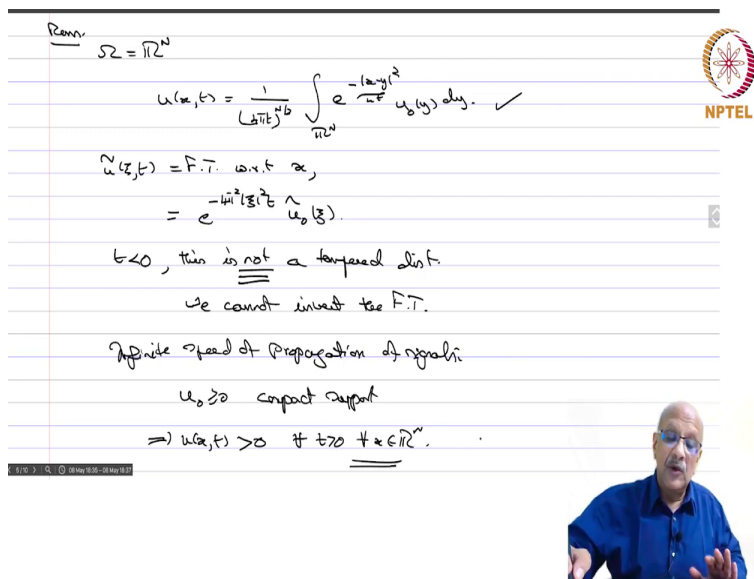 Rem.
Ω = ℝᴺ
u(x,t) = 1/(4πt)^{N/2} ∫_{ℝᴺ} e^{-|x-y|²/4t} u₀(y) dy. ✓
NPTEL
û(ξ,t) = F.T. w.r.t x,
= e^{-4π²|ξ|²t} û₀(ξ).
t<0, this is not a tempered dist.
we cannot invert the F.T.
Infinite speed of propagation of signals
u₀ ≥ 0 compact support
⇒ u(x,t) > 0 ∀ t>0 ∀ x ∈ ℝᴺ.
5/10 08 May 18:35 - 08 May 18:37